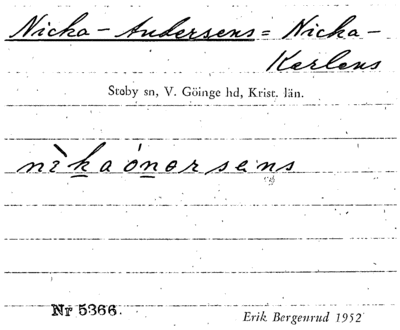 Nicka-Andersens = Nicka-
Karlens
Stoby sn, V. Göinge hd, Krist. län.
nìkaónərsens
Nr 5366.
Erik Bergenrud 1952